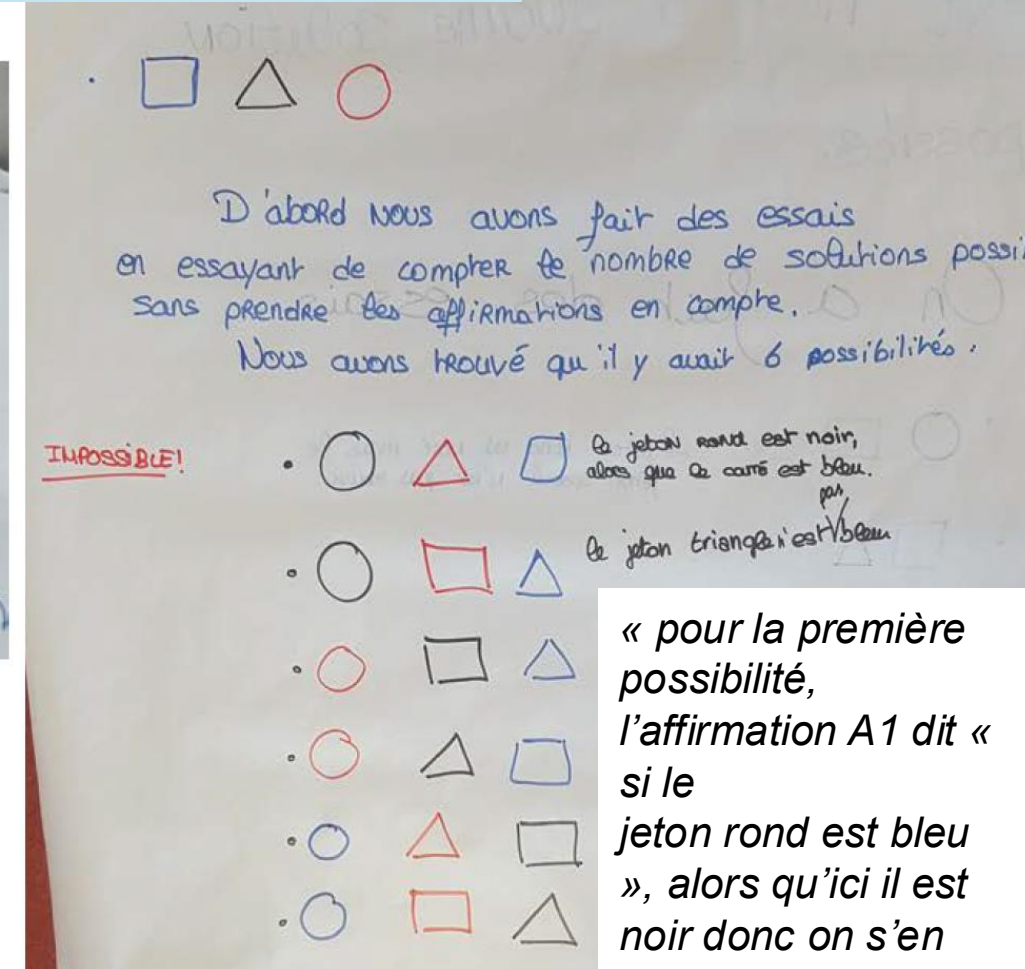 D'abord nous avons fait des essais
en essayant de compter le nombre de solutions possi
sans prendre les affirmations en compte.
Nous avons trouvé qu'il y avait 6 possibilités.
IMPOSSIBLE!
le jeton rond est noir,
alors que le carré est bleu.
pas
le jeton triangle n'est bleu
« pour la première
possibilité,
l'affirmation A1 dit «
si le
jeton rond est bleu
», alors qu'ici il est
noir donc on s'en